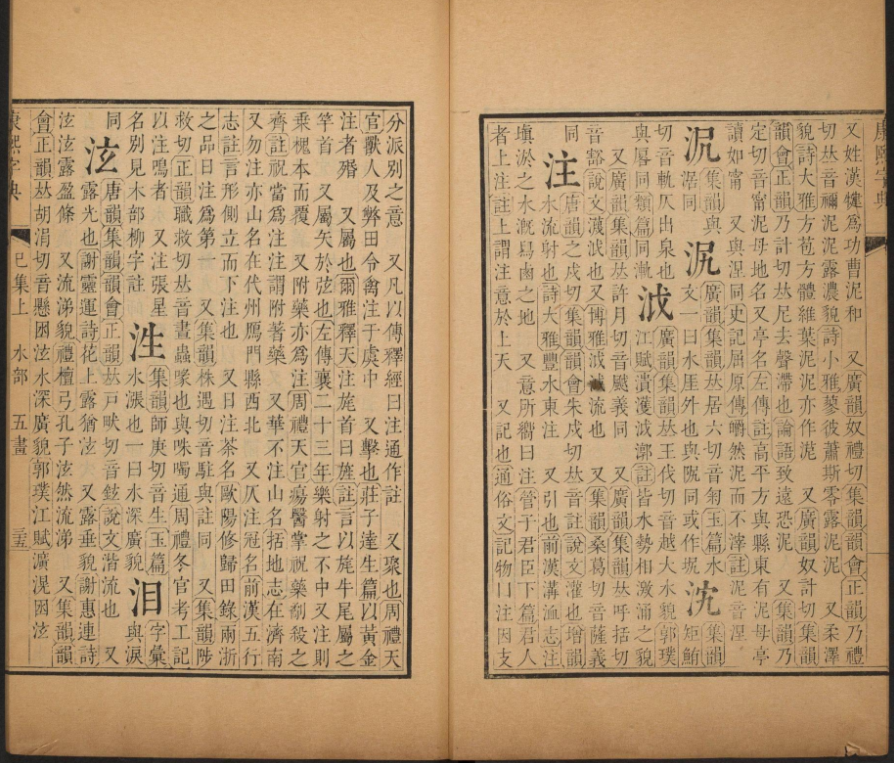 又姓漢犍爲功曹泥和　又廣韻奴禮切集韻韻會正韻乃禮
切𠀤音禰泥泥露濃貌詩小雅蓼彼蕭斯零露泥泥　又柔澤
貌詩大雅方苞方體維葉泥泥亦作苨　又廣韻奴計切集韻
韻會正韻乃計切𠀤尼去聲滯也論語致遠恐泥　又集韻乃
定切音甯泥母地名又亭名左傳註高平方與縣東有泥母亭
讀如甯　又與涅同史記屈原傳皭然泥而不滓註泥音涅
𣲷集韻與漘同
坭廣韻集韻𠀤居六切音匊玉篇水文一曰水厓外也與阮同或作坭
沈集韻矩鮪切音軌仄出泉也與厬同類篇同漸
泧廣韻集韻𠀤王伐切音越大水貌郭璞江賦㵧濩泧漷註皆水勢相激涌之貌
又廣韻集韻𠀤許月切音颰義同　又廣韻集韻𠀤呼括切
音豁說文瀎泧也又博雅泧泧流也　又集韻桑葛切音薩義
同
注唐韻之戍切集韻韻會朱戍切𠀤音註說文灌也增韻水流射也詩大雅豐水東注　又引也前漢溝洫志注
塡淤之水漑舄鹵之地　又意所嚮曰注管子君臣下篇君人
者上注註上謂注意於上天　又記也通俗文記物曰注因支
分派別之意　又凡以傳釋經曰注通作註　又聚也周禮天
官獸人及弊田令禽注于虞中　又擊也莊子達生篇以黃金
注者殙　又屬也爾雅釋天注旄首曰旌註言以旄牛尾屬之
竿首　又屬矢於弦也左傳襄二十三年樂射之不中又注則
乘槐本而覆　又附藥亦爲注周禮天官瘍醫掌祝藥劀殺之
齊註祝當爲注注謂附著藥　又華不注山名括地志在濟南
又勿注亦山名在代州鴈門縣西北　又仄注冠名前漢五行
志註言形側立而下注也　又日注茶名歐陽修歸田錄兩浙
之品日注爲第一　又集韻株遇切音駐與註同　又集韻陟
救切正韻職救切𠀤音晝蟲喙也與咮噣通周禮冬官考工記
以注鳴者　又注張星名別見木部柳字註
泩集韻師庚切音生玉篇水漲也一曰水深廣貌
泪字彙與淚同
泫唐韻集韻韻會正韻𠀤戸畎切音鉉說文潛流也　又露光也謝靈運詩花上露猶泫　又露垂貌謝惠連詩
泫泫露盈條　又流涕貌禮檀弓孔子泫然流涕　又集韻韻
會正韻𠀤胡涓切音懸困泫水深廣貌郭璞江賦澒滉困泫
康熙字典
巳集上　水部　五畫
三五
康熙字典